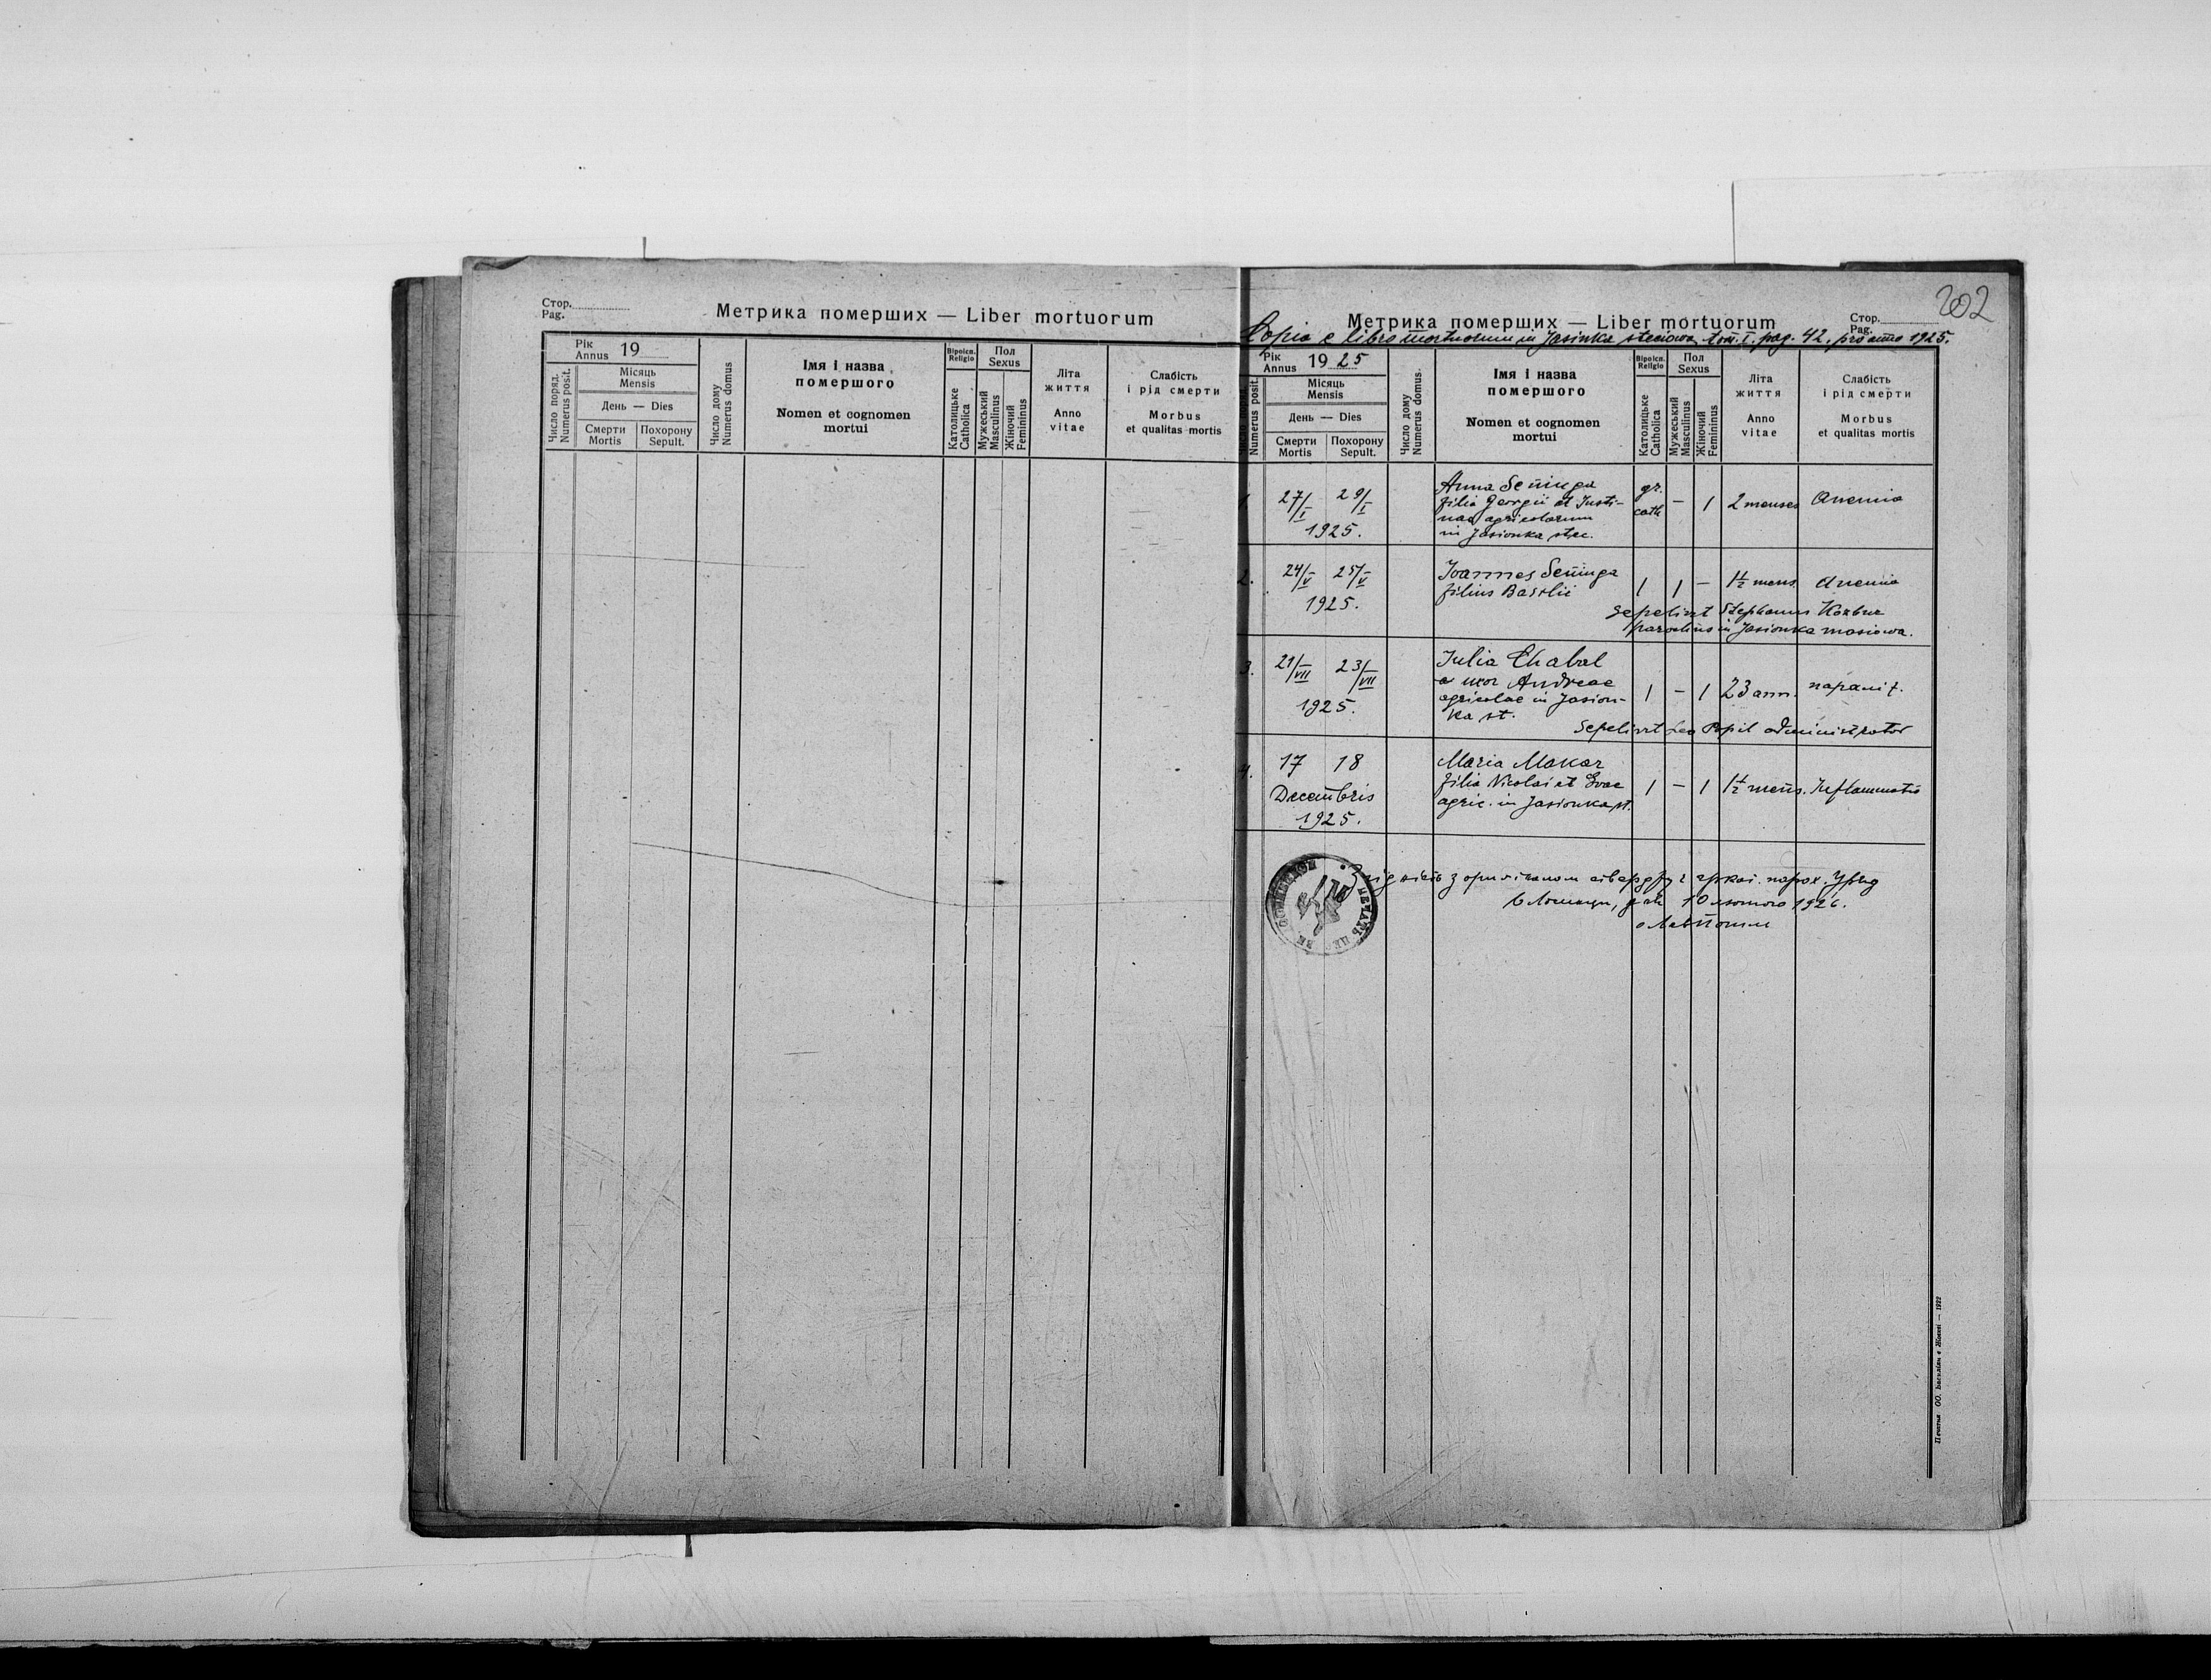 Стор.
Pag.
Метрика померших — Liber mortuorum
Рік
Annus 19
Місяць
Mensis
День — Dies
Число поряд.
Numerus posit.
Смерти
Mortis
Похорону
Sepult.
Число дому
Numerus domus
Імя і назва
помершого
Nomen et cognomen
mortui
Віроісп.
Religio
Католицьке
Catholica
Пол
Sexus
Мужеський
Masculinus
Жіночий
Femininus
Літа
життя
Anno
vitae
Слабість
і рід смерти
Morbus
et qualitas mortis
202
Метрика померших — Liber mortuorum
Стор.
Pag.
Copia e libro mortuorum in Jasinka steciowa, tom. I. pag. 42. pro anno 1925.
Рік
Annus 1925
Місяць
Mensis
День — Dies
Numerus posit.
Смерти
Mortis
Похорону
Sepult.
Число дому
Numerus domus.
Імя і назва
помершого
Nomen et cognomen
mortui
Віроісп.
Religio
Католицьке
Catholica
Пол
Sexus
Мужеський
Masculinus
Жіночий
Femininus
Літа
життя
Anno
vitae
Слабість
і рід смерти
Morbus
et qualitas mortis
1. 27/I 29/I 1925. Anna Seninga gr. cath — 1 2 menses Anemia
filia Georgii et Justi-
nae agricolarum
in Jasionka stec.
2. 24/V 25/V 1925. Joannes Seninga 1 1 — 1½ mens. Anemia
filius Basilii
Sepelivit Stephanus
parochus in Jasionka masiowa.
3. 21/VII 23/VII 1925. Julia Chabal 1 — 1 23 ann.
uxor Andreae
agricolae in Jasion-
ka st.
Sepelivit Leo Popil administrator
4. 17 18 Decembris 1925. Maria Makar 1 — 1 1½ mens. Inflammatio
filia Nicolai et Evae
agric. in Jasionka st.
Згідність з оригіналом стверджує гр. кат. парох. Уряд
дня 10 лютого 1926.
Печатня ОО. Василіян в Жовкві — 1922